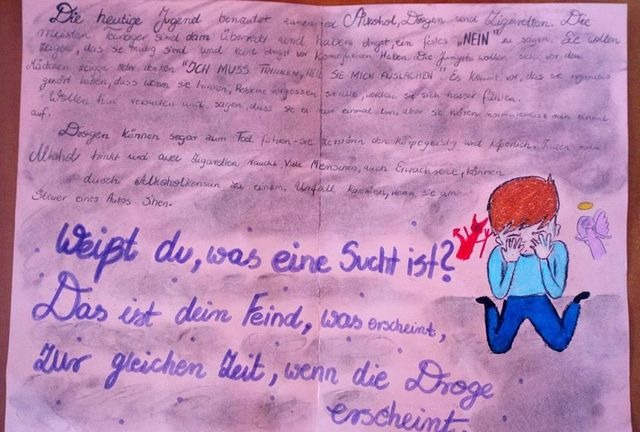 Die heutige Jugend benutzt zunehmend Alkohol, Drogen und Zigaretten. Die
meisten Teinager sind dam überredt und haben Angst, ein festes „NEIN" zu sagen. Sie wollen
zeigen, das sie mutig sind und keine Angst vor Komplexen haben. Die Jungst wollen sich vor den
Mädchen zeigen oder denken "ICH MUSS TRINKEN, SIE MICH AUSLACHEN". Es kommt vor, das sie irgendwo
gehört haben, dass wenn sie trinken, Probleme vergessen werden sie sich besser fühlen.
Wollen nur versuchen und sagen, dass sie es nur einmal tun, aber sie hören normalerweise nien einmal
auf.
Drogen können sogar zum Tod führen - sie zerstören den Körper geistig und körperlich. Indem man
Alkohol trinkt und auch Zigaretten raucht. Viele Menschen, auch Erwachsene, können
durch Alkoholkonsum zu einem Unfall kommen, wenn sie am
Steuer eines Autos sitzen.
Weißt du, was eine Sucht ist?
Das ist dein Feind, was erscheint,
zur gleichen Zeit, wenn die Droge
erscheint.